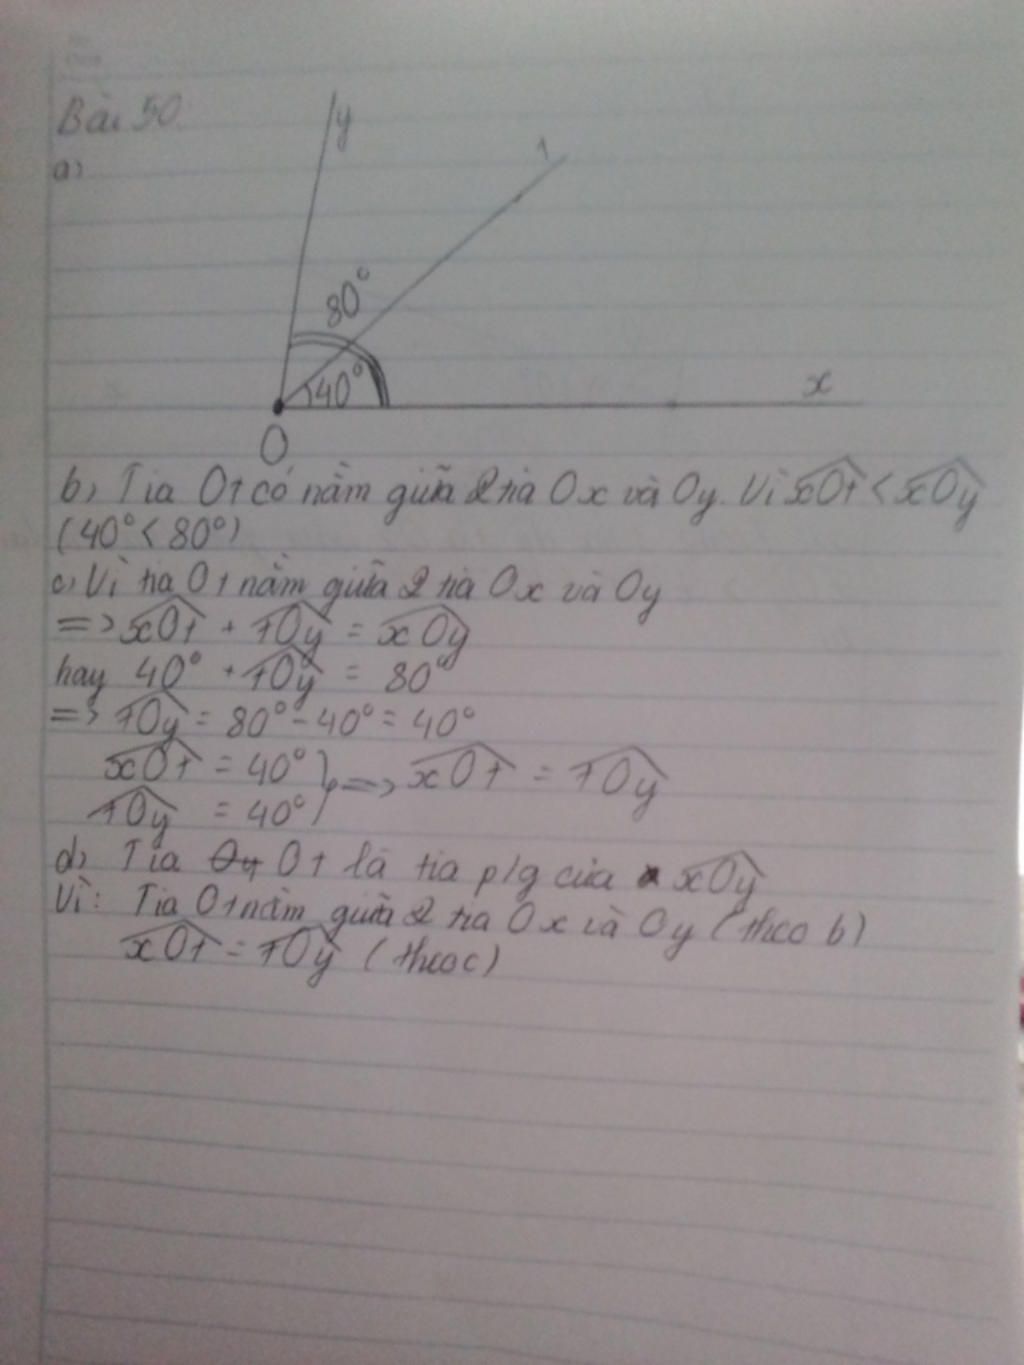 Bài 50
a)
y
t
80°
40°
x
O
b, Tia Ot có nằm giữa 2 tia Ox và Oy. Vì xOt < xOy
(40° < 80°)
c, Vì tia Ot nằm giữa 2 tia Ox và Oy
=> xOt + tOy = xOy
hay 40° + tOy = 80°
=> tOy = 80° - 40° = 40°
xOt = 40° } => xOt = tOy
tOy = 40°
d, Tia Oy Ot là tia p/g của xOy
Vì: Tia Ot nằm giữa 2 tia Ox và Oy (theo b)
xOt = tOy (theo c)